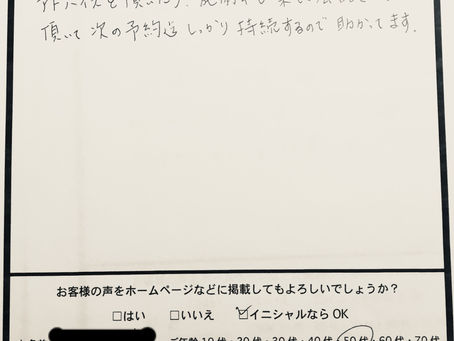 アドバイスを頂いたり、施術中も楽しい
頂いて次の予約迄しっかり持続するので助かってます。
お客様の声をホームページなどに掲載してもよろしいでしょうか？
□はい □いいえ ☑イニシャルなら OK
ご年齢 10代・20代・30代・40代・50代・60代・70代